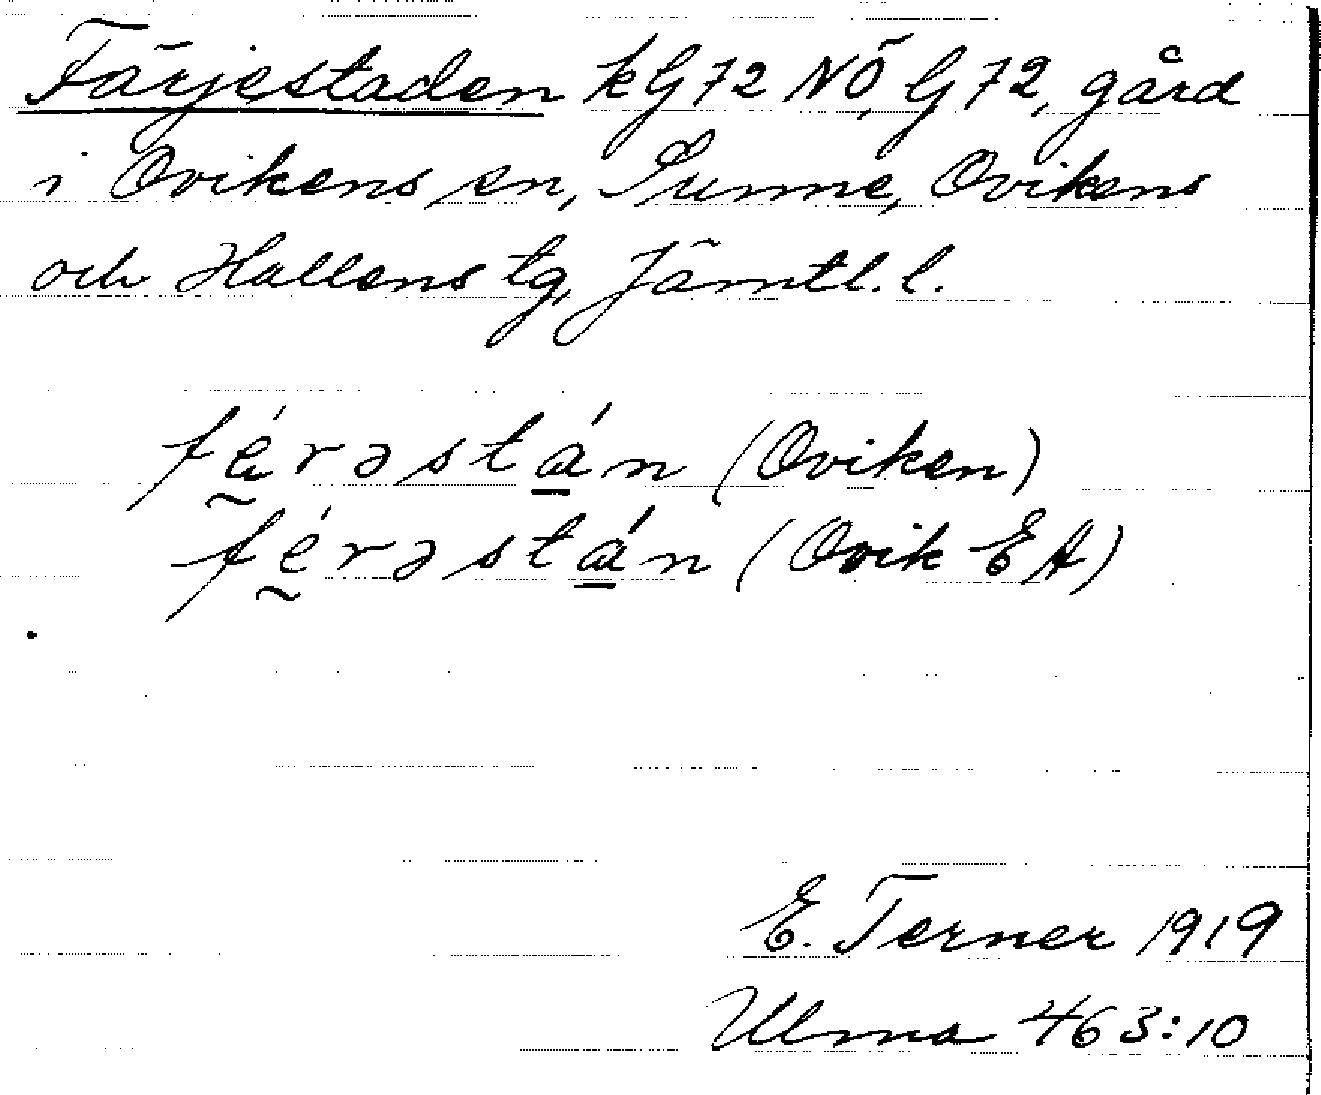 Färjestaden kG72 NÖ, G72, gård
i Ovikens sn, Sunne, Ovikens
och Hallens tg, Jämtl. l.
férəstán (Oviken)
férəstán (Ovik EA)
E. Terner 1919
Ulma 463:10